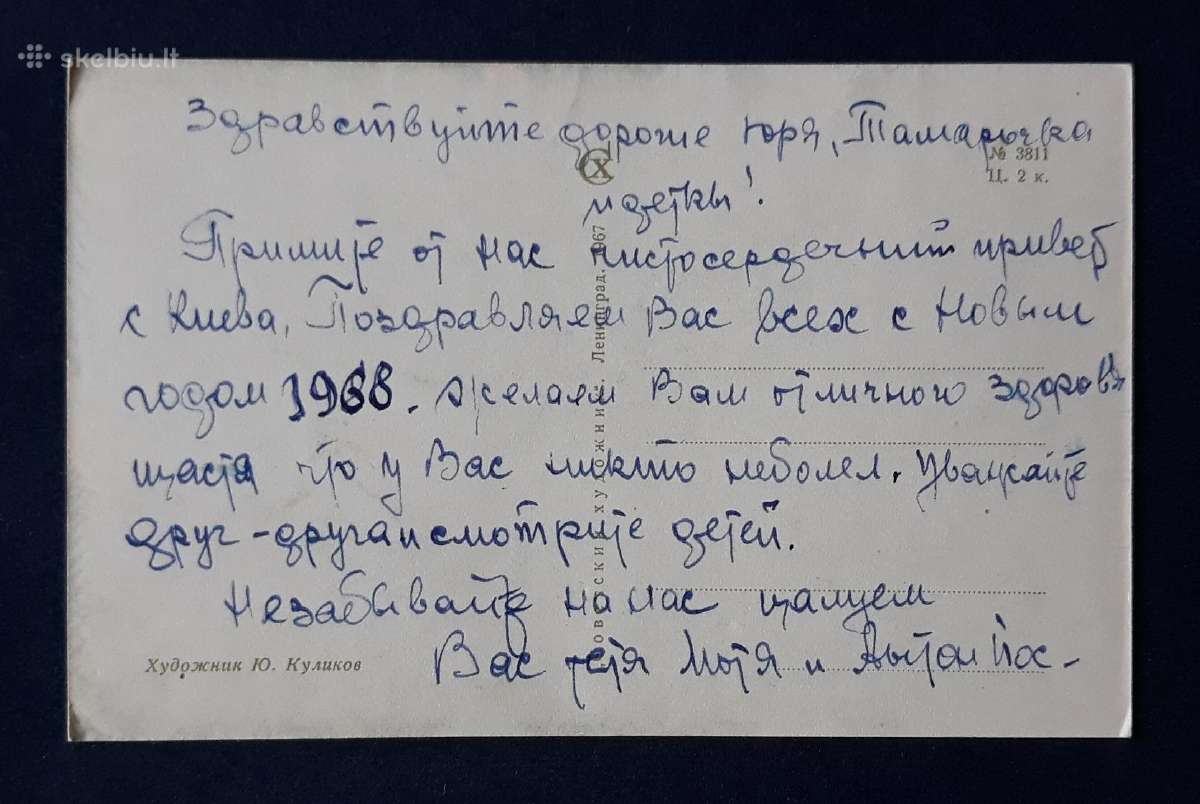 skelbiu.lt
Здравствуйте дороже Юря, Тамарочка
№ 3811
Ц. 2 к.
и детки!
Примите от нас чистосердечний привет
с Киева, Поздравляем Вас всех с Новым
годом 1968. желаем Вам отличного здоровя
щастя что у Вас никто неболел. уважайте
друг-друга и смотрите детей.
Незабывайте на нас цалуем
Вас тетя Мотя и
Художник Ю. Куликов
художник Ленинград. 1967